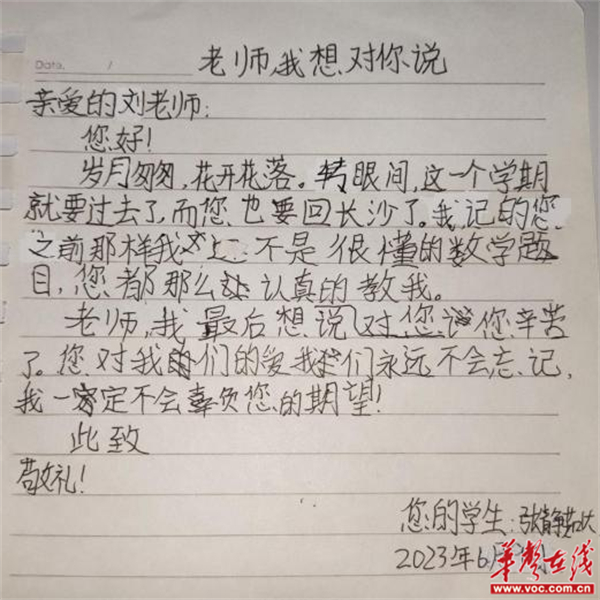 Date. /
老师,我想对你说
亲爱的刘老师:
您好!
岁月匆匆,花开花落。转眼间,这一个学期
就要过去了,而您也要回长沙了。我记的您
之前那样我 不是很懂的数学题
目,您都那么 认真的教我。
老师,我最后想说对您说您辛苦
了。您对我们的爱我们永远不会忘记,
我一定不会辜负您的期望!
此致
敬礼!
您的学生:张静
2023年6月
华声在线
www.voc.com.cn